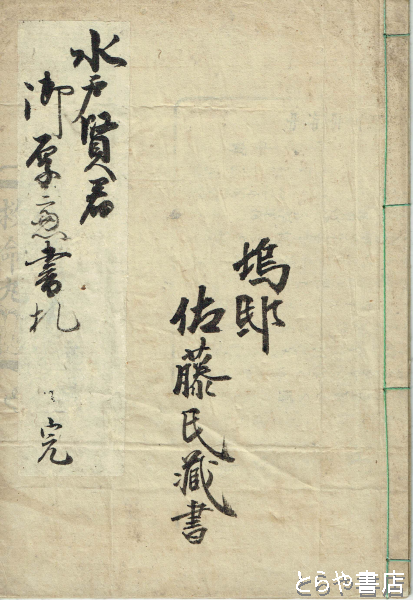 塢邸
佐藤氏藏書
水戸賢君
御厚意書札
完
とらや書店